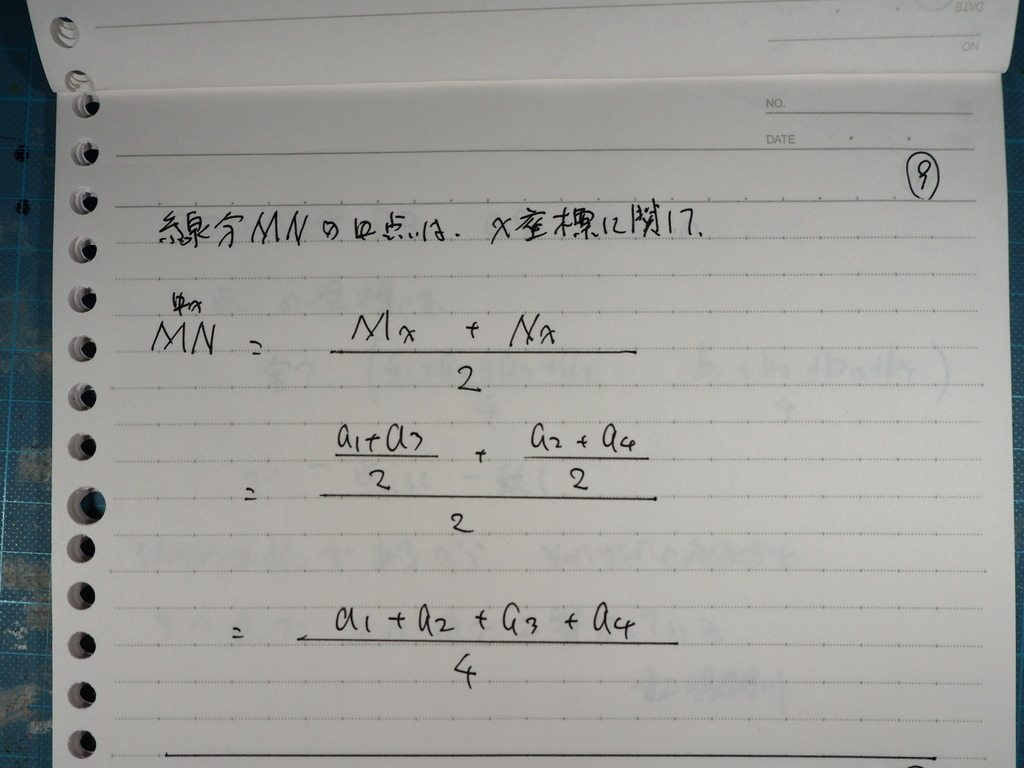 NO.
DATE
⑨
線分MNの中点は. x座標に関して.
中x
MN = (Mx + Nx) / 2
= ((a1+a3)/2 + (a2+a4)/2) / 2
= (a1 + a2 + a3 + a4) / 4